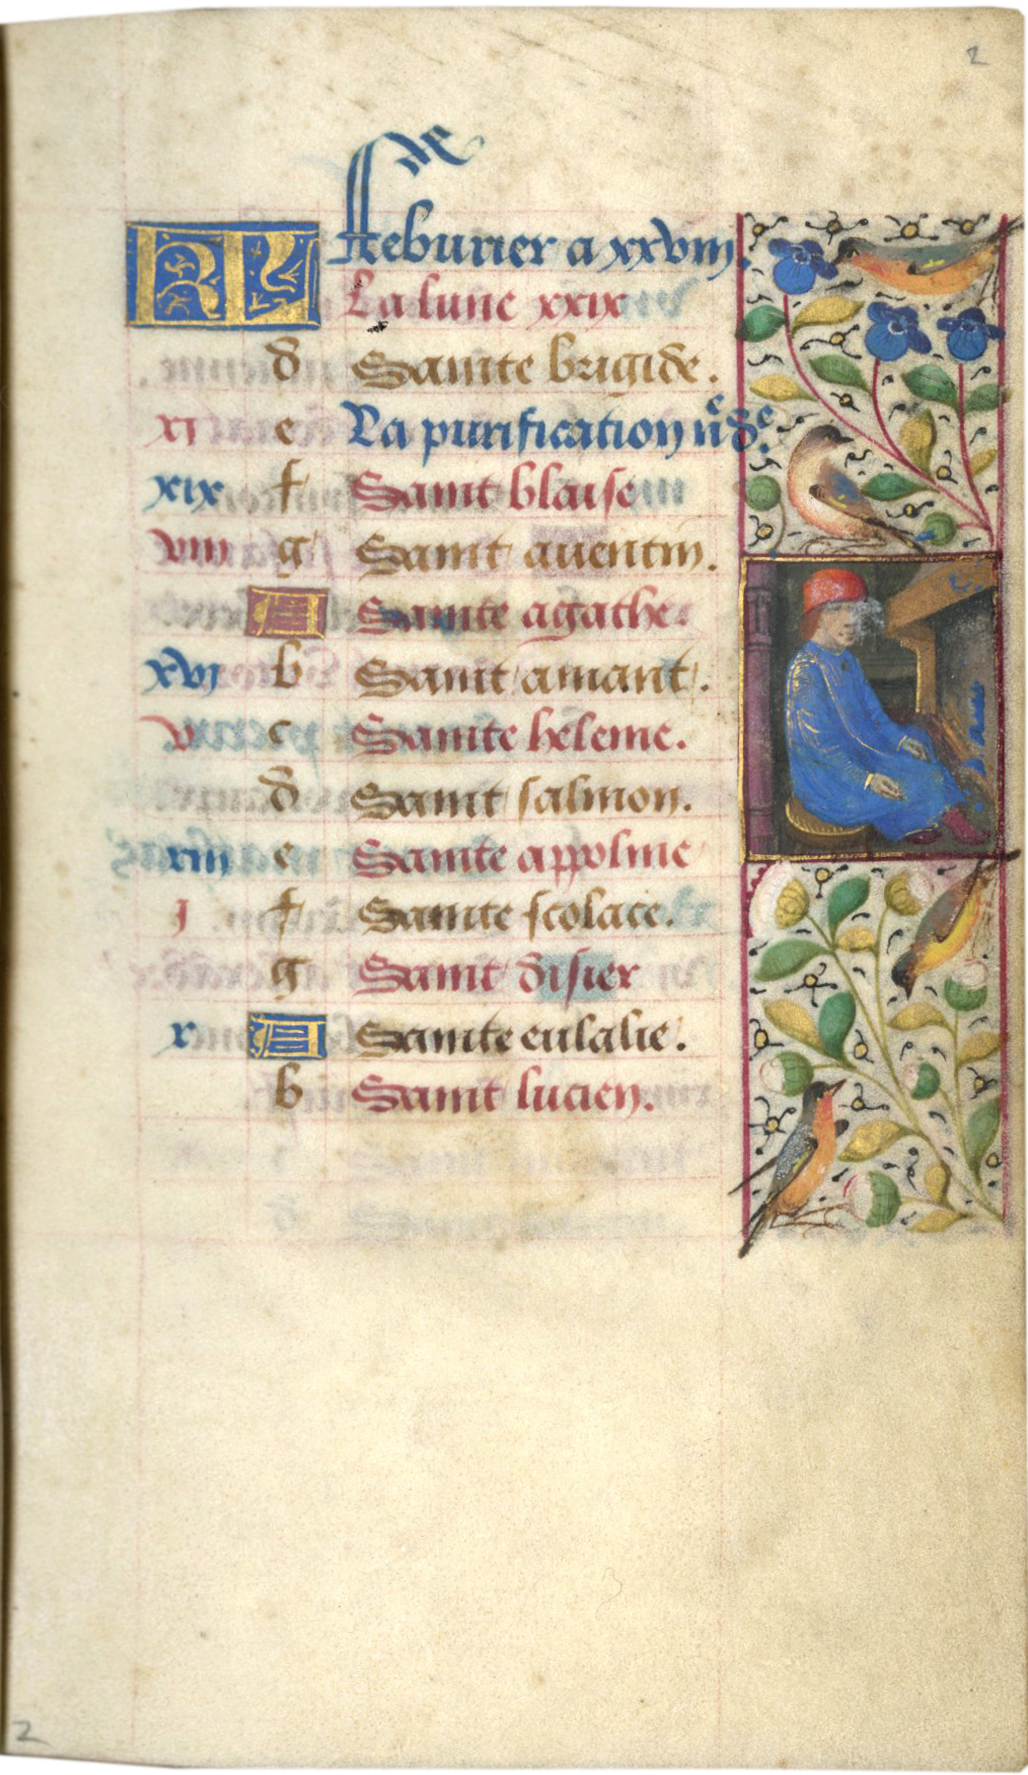 2
KL Feburier a xxviii.
La lune xxix
d Sainte brigide.
xi e La purification n̄e de.
xix f Saint blaise
viii g Saint auentin.
A Sainte agathe.
xvi b Saint amant.
v c Sainte heleine.
d Saint salmon.
xiii e Sainte appoline
j f Sainte scolace.
g Saint disier
x A Sainte eulalie.
b Saint lucien.
2